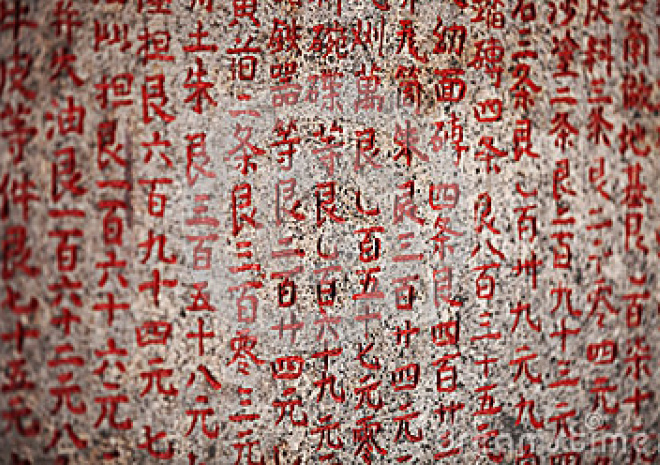 地基艮乚百柒十
灰料三条艮二千零四元
沙塗二条艮二百九十三元四
石二条艮乚百卅九元九
階磚四条艮八百三十五元
幼面磚四条艮四百廿
飛筒朱艮三百廿四元
州萬艮乚百五十七元零
碗碟等艮乚百六十九元
鉄器等艮二百廿四元
黄道二条艮三百零三元
土朱艮三百五十八元
担艮六百九十四元七
担艮一百六十六元
火油艮一百六十二元八
皮等件艮七十五元